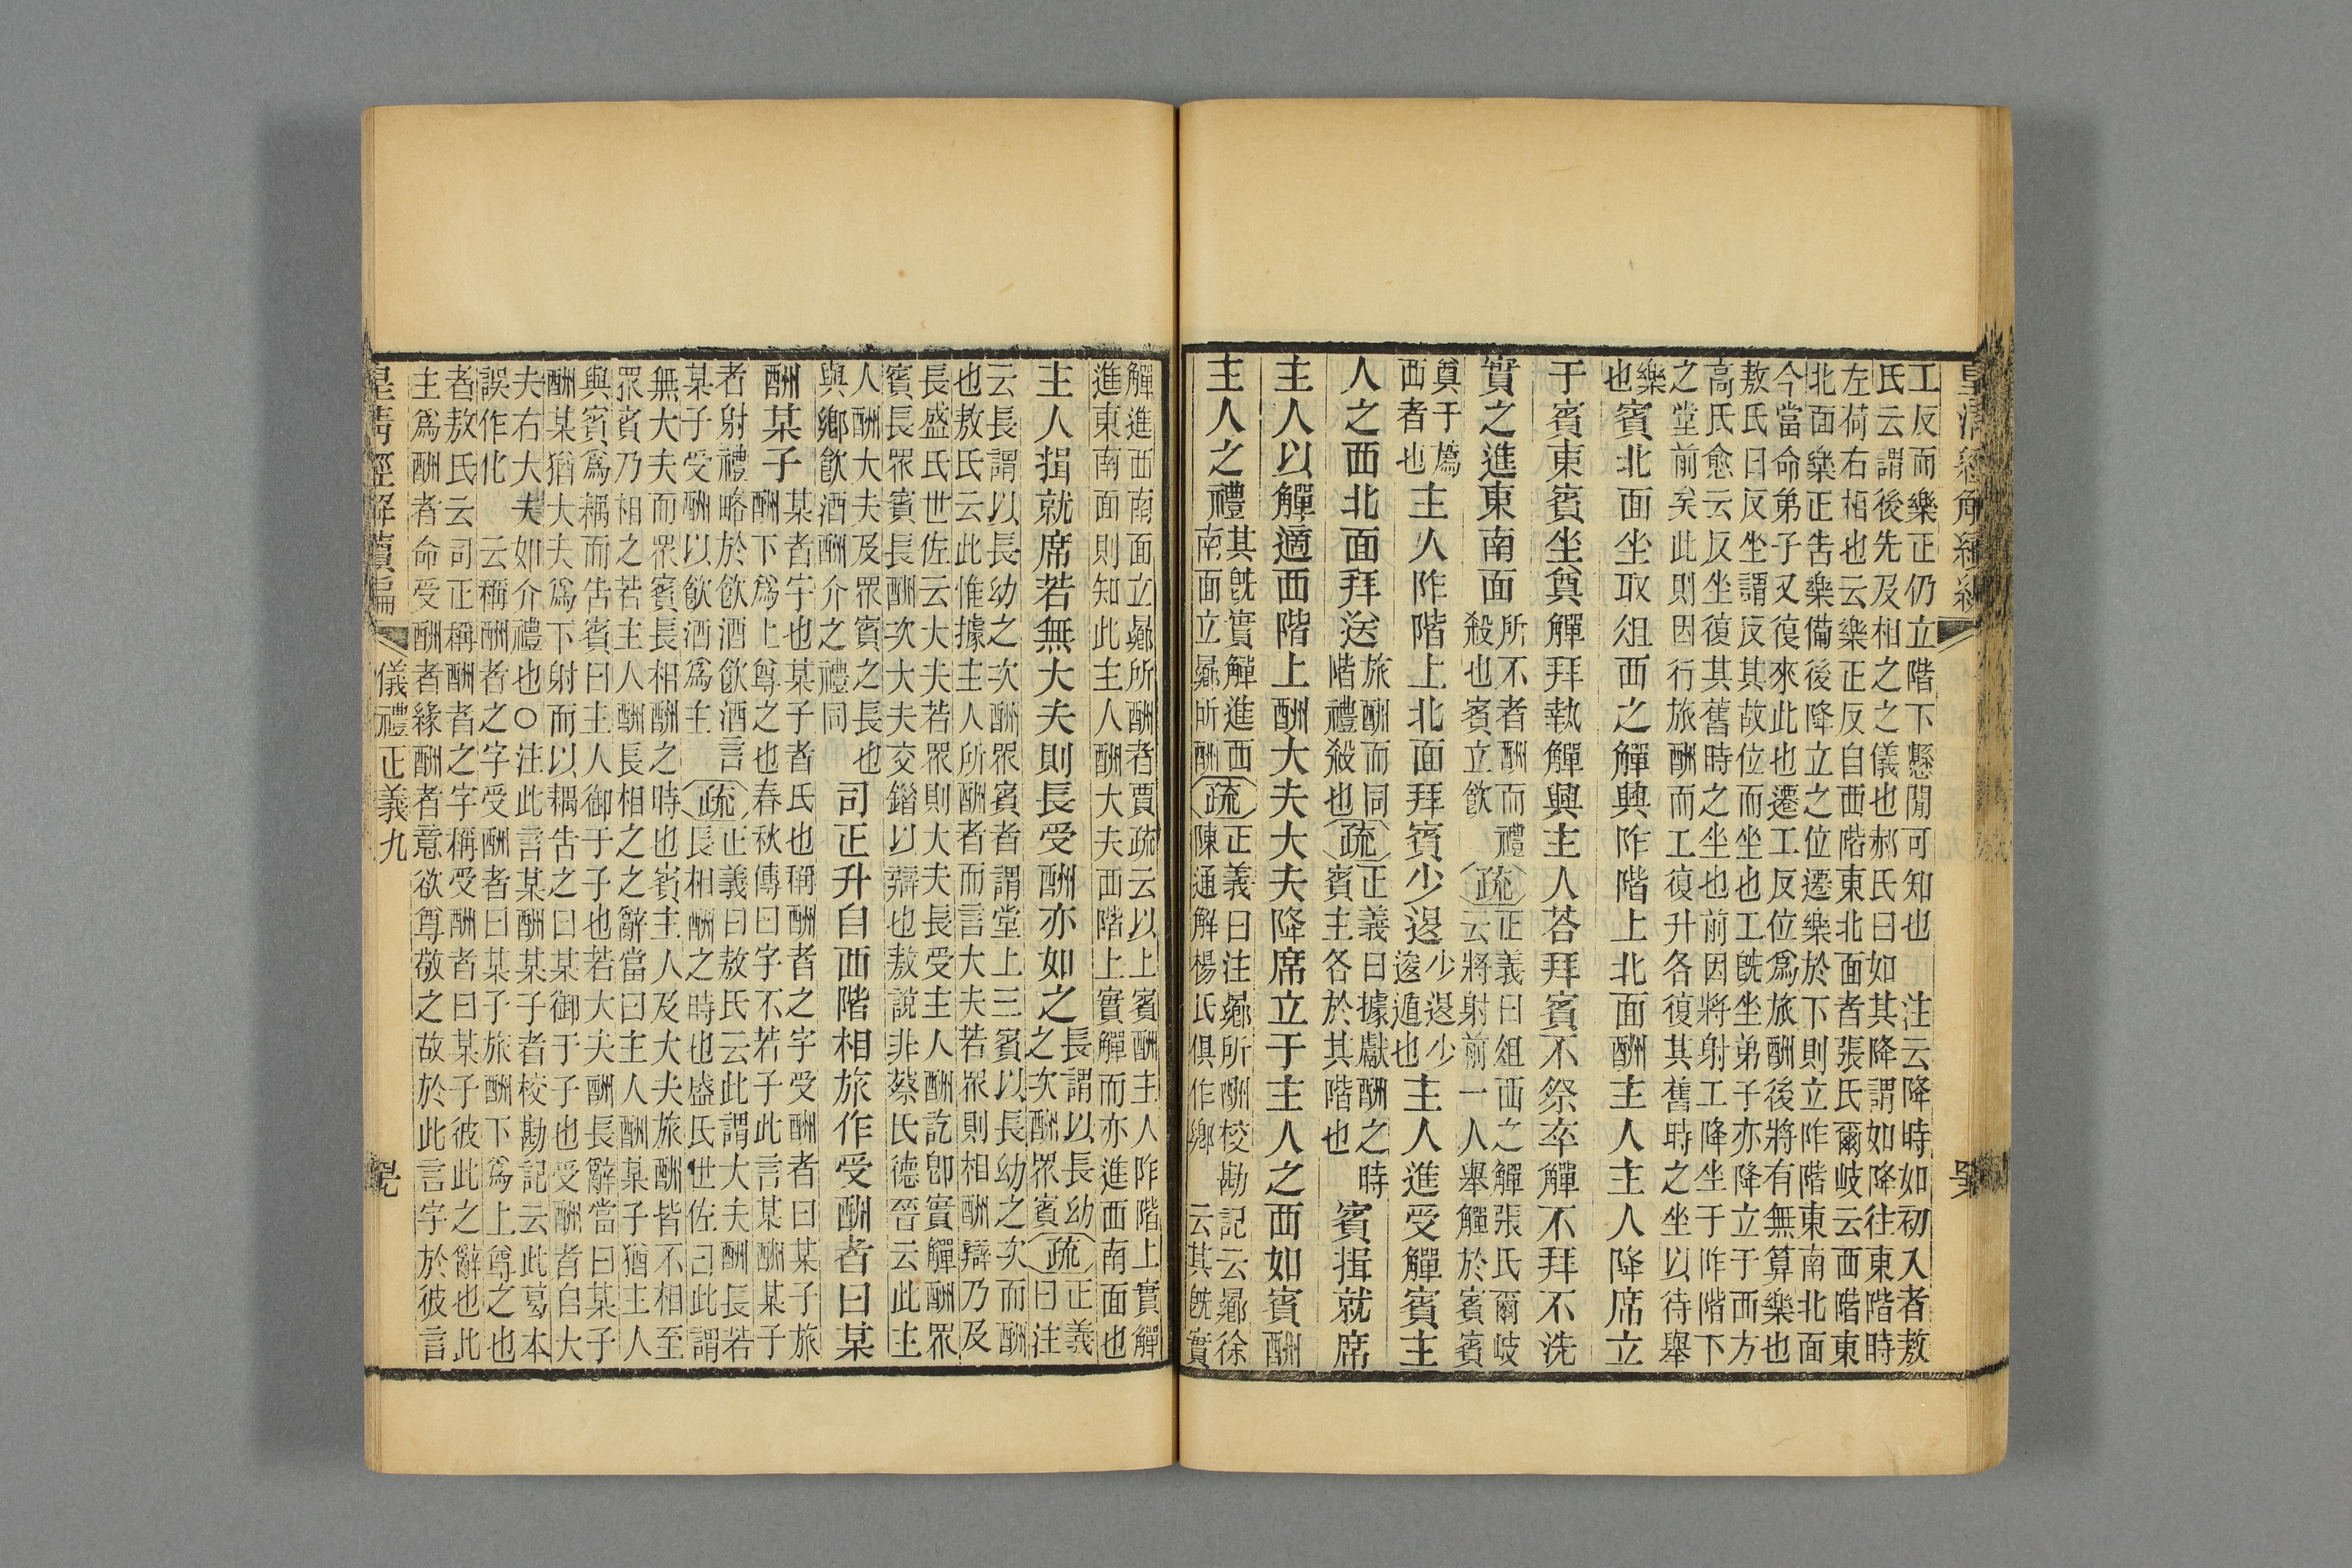 皇清經解續編
工反而樂正仍立階下懸閒可知也 注云降時如初入者敖
氏云謂後先及相之之儀也郝氏曰如其降謂如降往東階時
左荷右相也云樂正反自西階東北面者張氏爾岐云西階東
北面樂正告樂備後降立之位遷樂於下則立阼階東南北面
今當命弟子又復來此也遷工反位爲旅酬後將有無算樂也
敖氏曰反坐謂反其故位而坐也工旣坐弟子亦降立于西方
高氏愈云反坐復其舊時之坐也前因將射工降坐于阼階下
之堂前矣此則因行旅酬而工復升各復其舊時之坐以待舉
樂也 賓北面坐取俎西之觶興阼階上北面酬主人主人降席立
于賓東賓坐奠觶拜執觶興主人荅拜賓不祭卒觶不拜不洗
實之進東南面 所不者酬而禮殺也賓立飲 疏 正義曰俎西之觶張氏爾岐云將射前一人舉觶於賓賓
奠于薦西者也 主人阼階上北面拜賓少退 少退少逡遁也 主人進受觶賓主
人之西北面拜送 旅酬而同階禮殺也 疏 正義曰據獻酬之時賓主各於其階也 賓揖就席
主人以觶適西階上酬大夫大夫降席立于主人之西如賓酬
主人之禮 其旣實觶進西南面立鄉所酬 疏 正義曰注鄉所酬校勘記云鄉徐陳通解楊氏俱作鄕云其旣實
觶進西南面立鄉所酬者賈疏云以上賓酬主人阼階上實觶
進東南面則知此主人酬大夫西階上實觶而亦進西南面也
主人揖就席若無大夫則長受酬亦如之 長謂以長幼之次酬眾賓 疏 正義曰注
云長謂以長幼之次酬眾賓者謂堂上三賓以長幼之次而酬
也敖氏云此惟據主人所酬者而言大夫若眾則相酬辯乃及
長盛氏世佐云大夫若眾則大夫長受主人酬訖卽實觶酬眾
賓長眾賓長酬次大夫交錯以辯也敖說非蔡氏德晉云此主
人酬大夫及眾賓之長也與鄉飲酒酬介之禮同 司正升自西階相旅作受酬者曰某
酬某子 某者字也某子者氏也稱酬者之字受酬者曰某子旅酬下爲上尊之也春秋傳曰字不若子此言某酬某子
者射禮略於飲酒飲酒言某子受酬以飲酒爲主 疏 正義曰敖氏云此謂大夫酬長若長相酬之時也盛氏世佐曰此謂
無大夫而眾賓長相酬之時也賓主人及大夫旅酬皆不相至
眾賓乃相之若主人酬長相之之辭當曰主人酬某子猶主人
與賓爲耦而告賓曰主人御于子也若大夫酬長辭當曰某子
酬某猶大夫爲下射而以耦告之曰某御于子也受酬者自大
夫右大夫如介禮也○注此言某酬某子者校勘記云此葛本
誤作化 云稱酬者之字受酬者曰某子旅酬下爲上尊之也
者敖氏云司正稱酬者之字稱受酬者曰某子彼此之辭也此
主爲酬者命受酬者緣酬者意欲尊敬之故於此言字於彼言
皇清經解續編 儀禮正義九